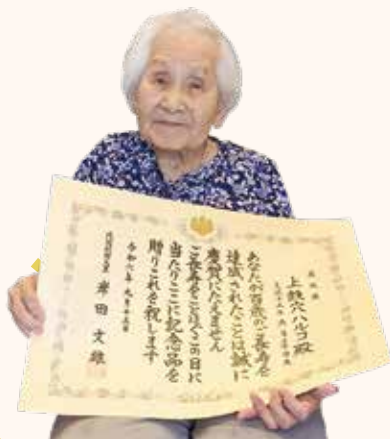 上鉄穴ハルコ殿
あなたが百歳のご長寿を
達成されたことは誠に
慶賀にたえません
ご長寿をことほぎこの日に
当たりここに記念品を
贈りこれを祝します
令和六年九月十五日
内閣総理大臣 岸田文雄